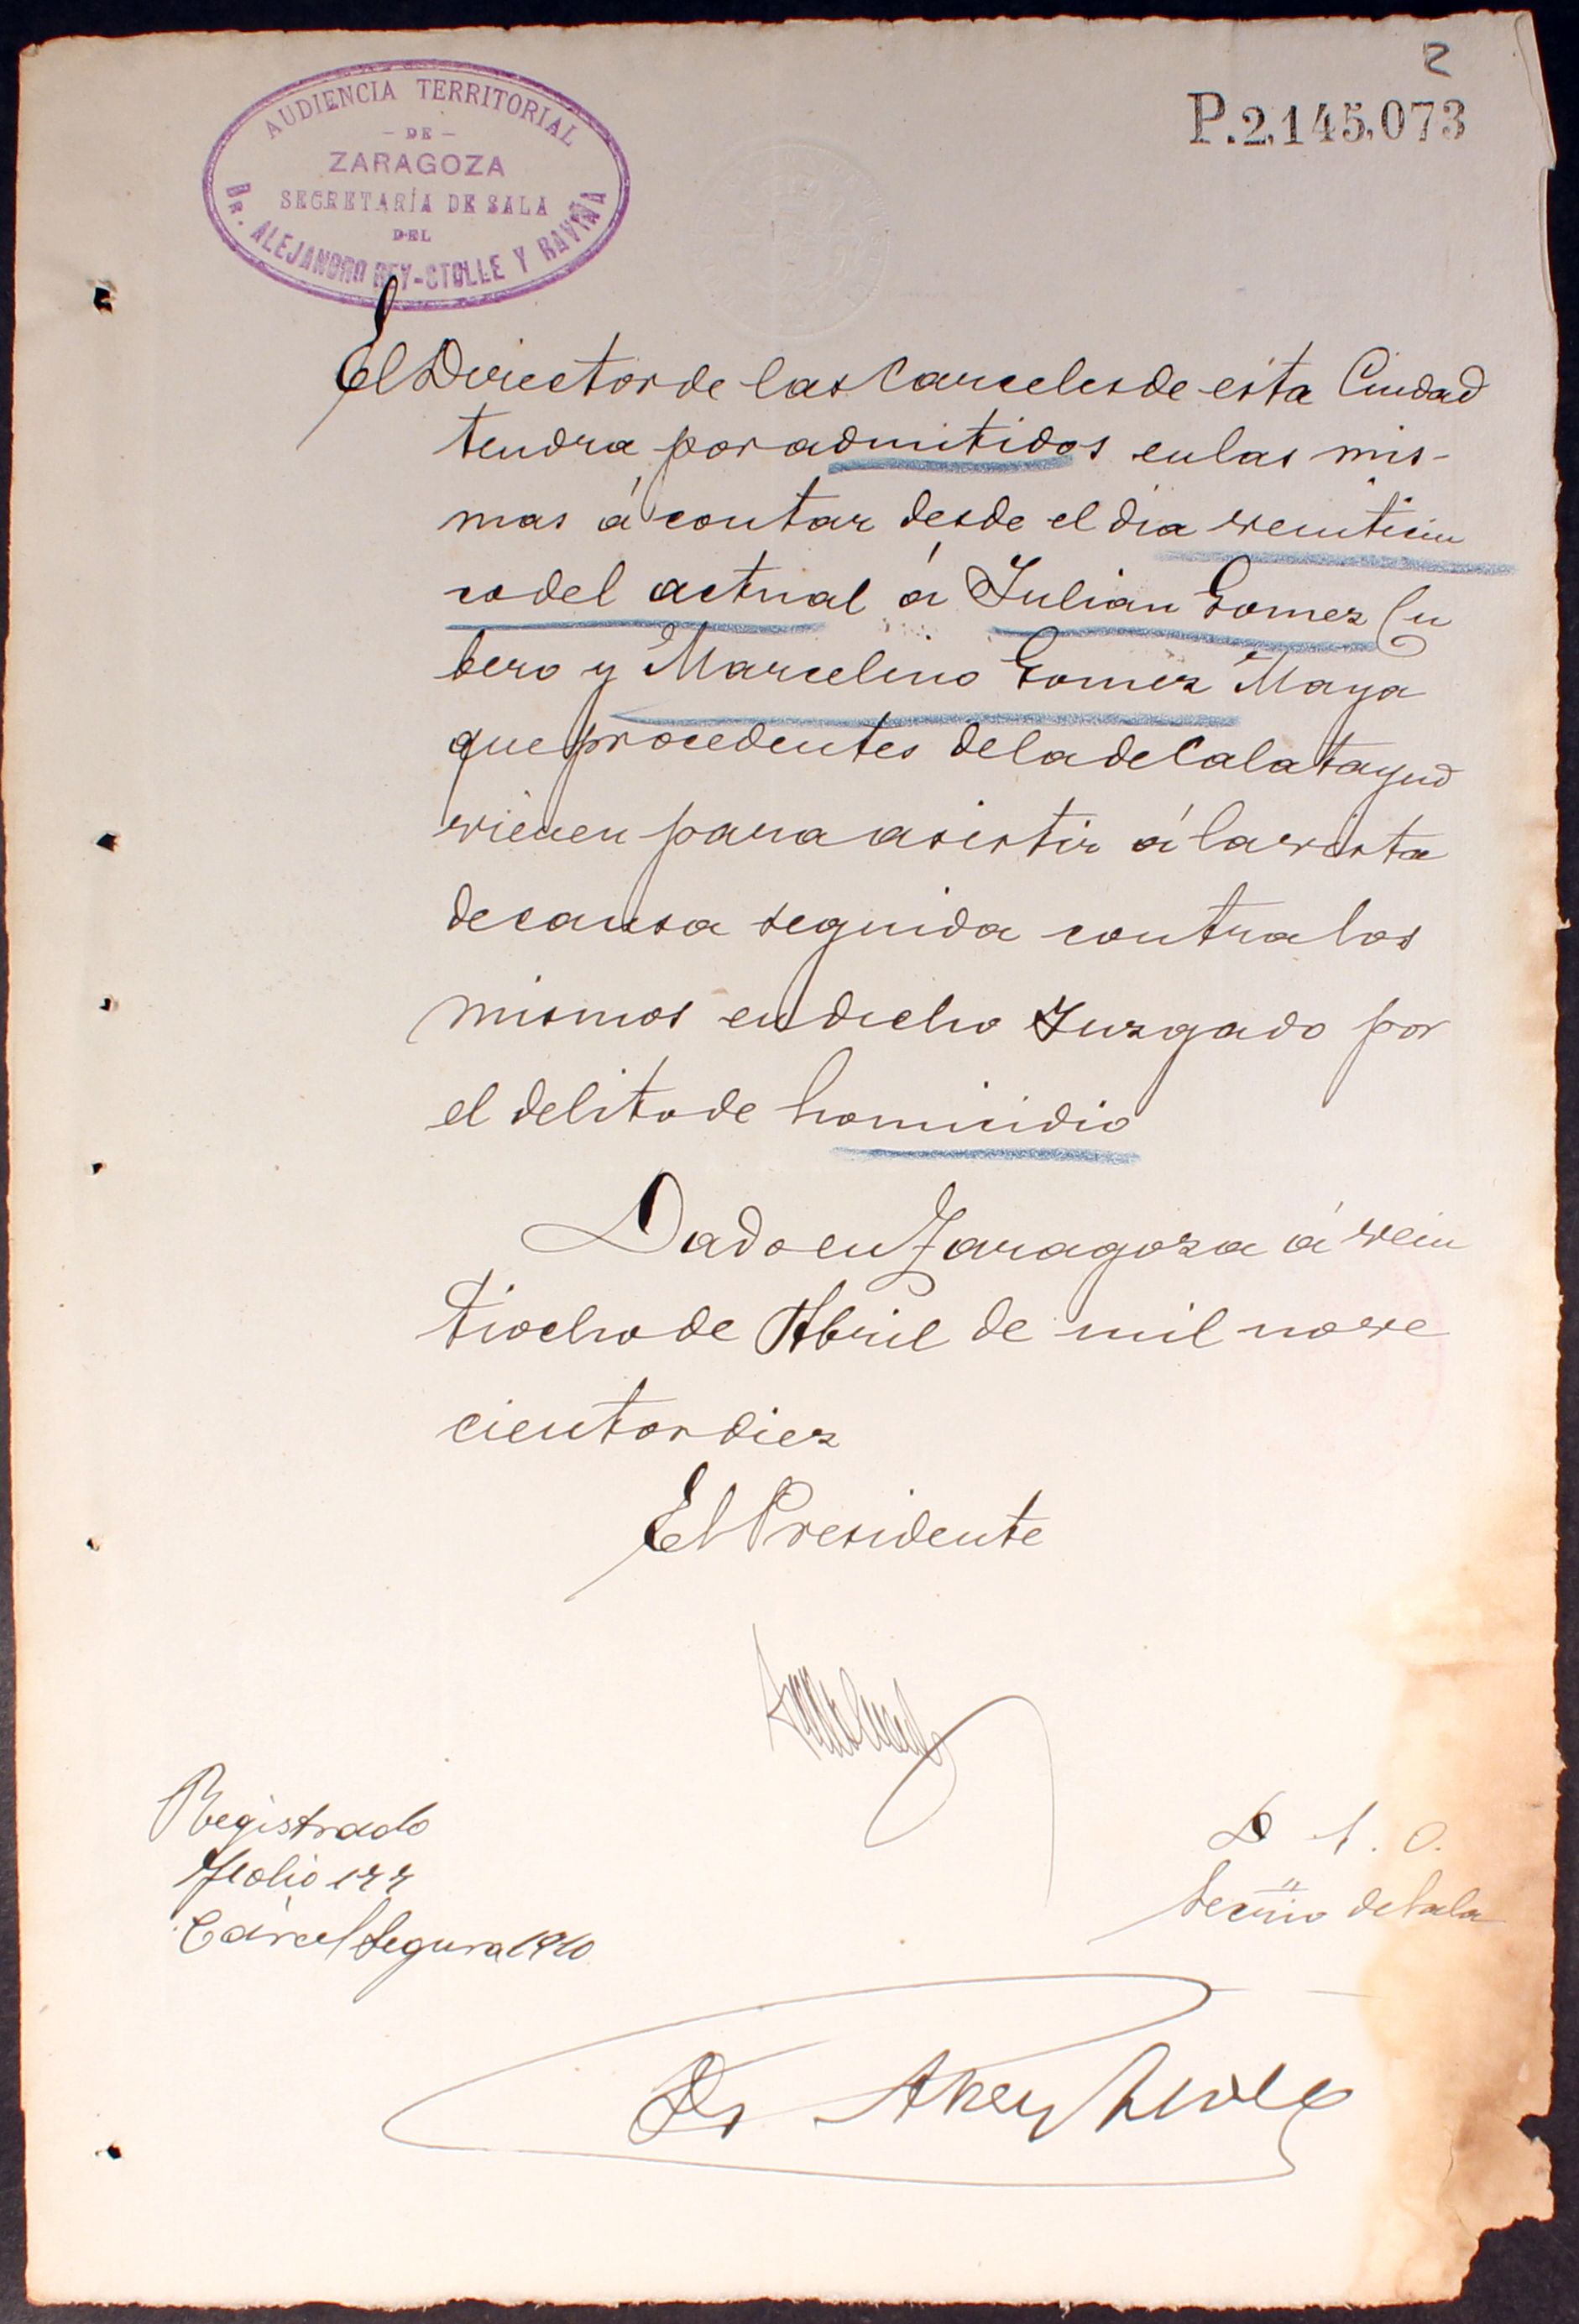 2
P.2,145,073
AUDIENCIA TERRITORIAL
- DE -
ZARAGOZA
SECRETARÍA DE SALA
DEL
DR. ALEJANDRO REY-STOLLE Y RAVIÑA
El Director de las Carceles de esta Ciudad
tendra por admitidos en las mis-
mas á contar desde el dia veinticin
co del actual á Julian Gomez Cu
bero y Marcelino Gomez Maya
que procedentes de la de Calatayud
vienen para asistir á la vista
de causa seguida contra los
mismos en dicho Juzgado por
el delito de homicidio
Dado en Zaragoza á vein
tiocho de Abril de mil nove
cientos diez
El Presidente
Registrado
folio 122
Cárcel Segura 1910
Secrio de Sala
Dr A Rey Stolle